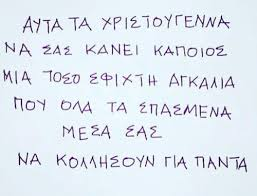 ΑΥΤΑ ΤΑ ΧΡΙΣΤΟΥΓΕΝΝΑ
ΝΑ ΣΑΣ ΚΑΝΕΙ ΚΑΠΟΙΟΣ
ΜΙΑ ΤΟΣΟ ΣΦΙΧΤΗ ΑΓΚΑΛΙΑ
ΠΟΥ ΟΛΑ ΤΑ ΣΠΑΣΜΕΝΑ
ΜΕΣΑ ΣΑΣ
ΝΑ ΚΟΛΛΗΣΟΥΝ ΓΙΑ ΠΑΝΤΑ